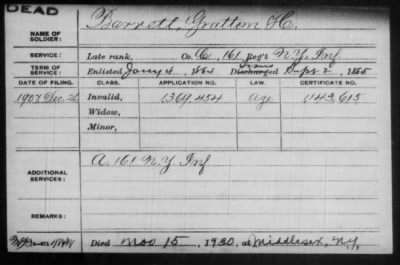 DEAD
NAME OF SOLDIER: Barrett, Gratton H.
SERVICE: Late rank, Co. C, 161 Reg't N.Y. Inf
TERM OF SERVICE: Enlisted Jany 4, 1864 Discharged Sept 2, 1865
DATE OF FILING. CLASS. APPLICATION NO. LAW. CERTIFICATE NO.
1907 Dec. 26 Invalid, 1364,454 Age 1143,615
Widow,
Minor,
ADDITIONAL SERVICES: A. 161 N.Y. Inf
REMARKS:
Died Nov 15, 1930, at Middlesex, N.Y.